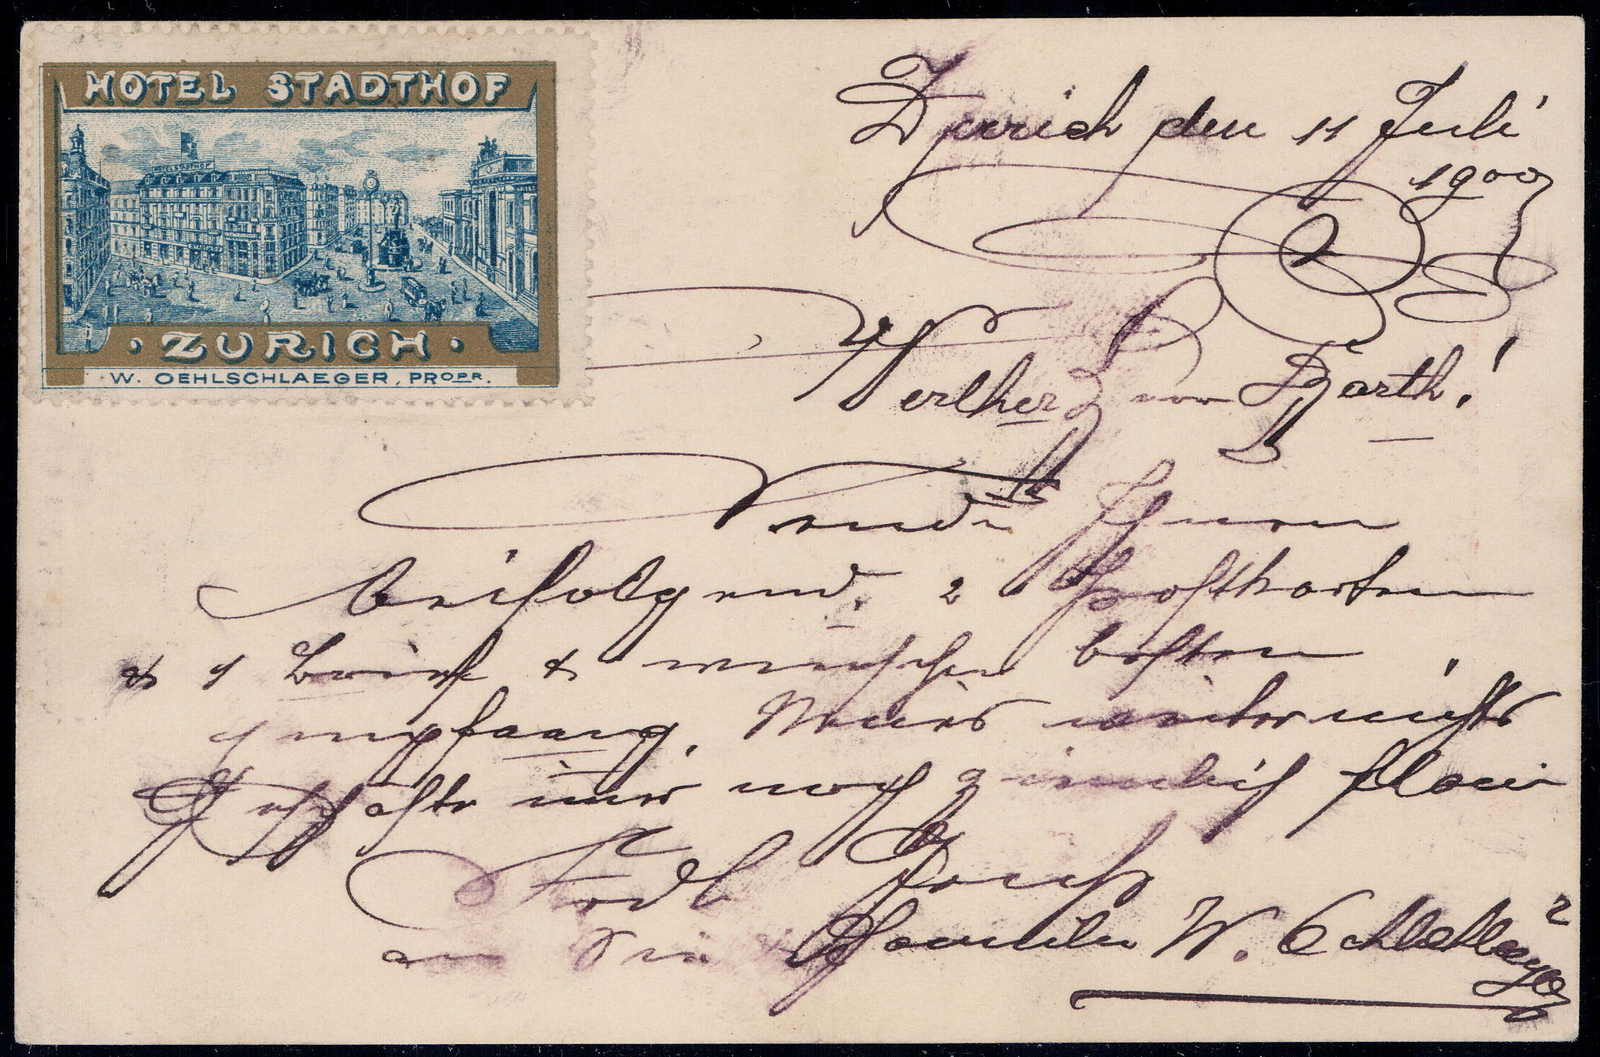 HOTEL STADTHOF
ZURICH
W. OEHLSCHLAEGER, PROPR.
Zürich den 11 Juli
1900
Werther von Barth!
Sende Ihnen
beifolgend 2 Postkarten
& 1 Brief & wünsche besten
Empfang. Neues weiter nichts
Geschäfte immer noch ziemlich flau
Frdl Gruss
an Sie Familie W. Oehlschläger